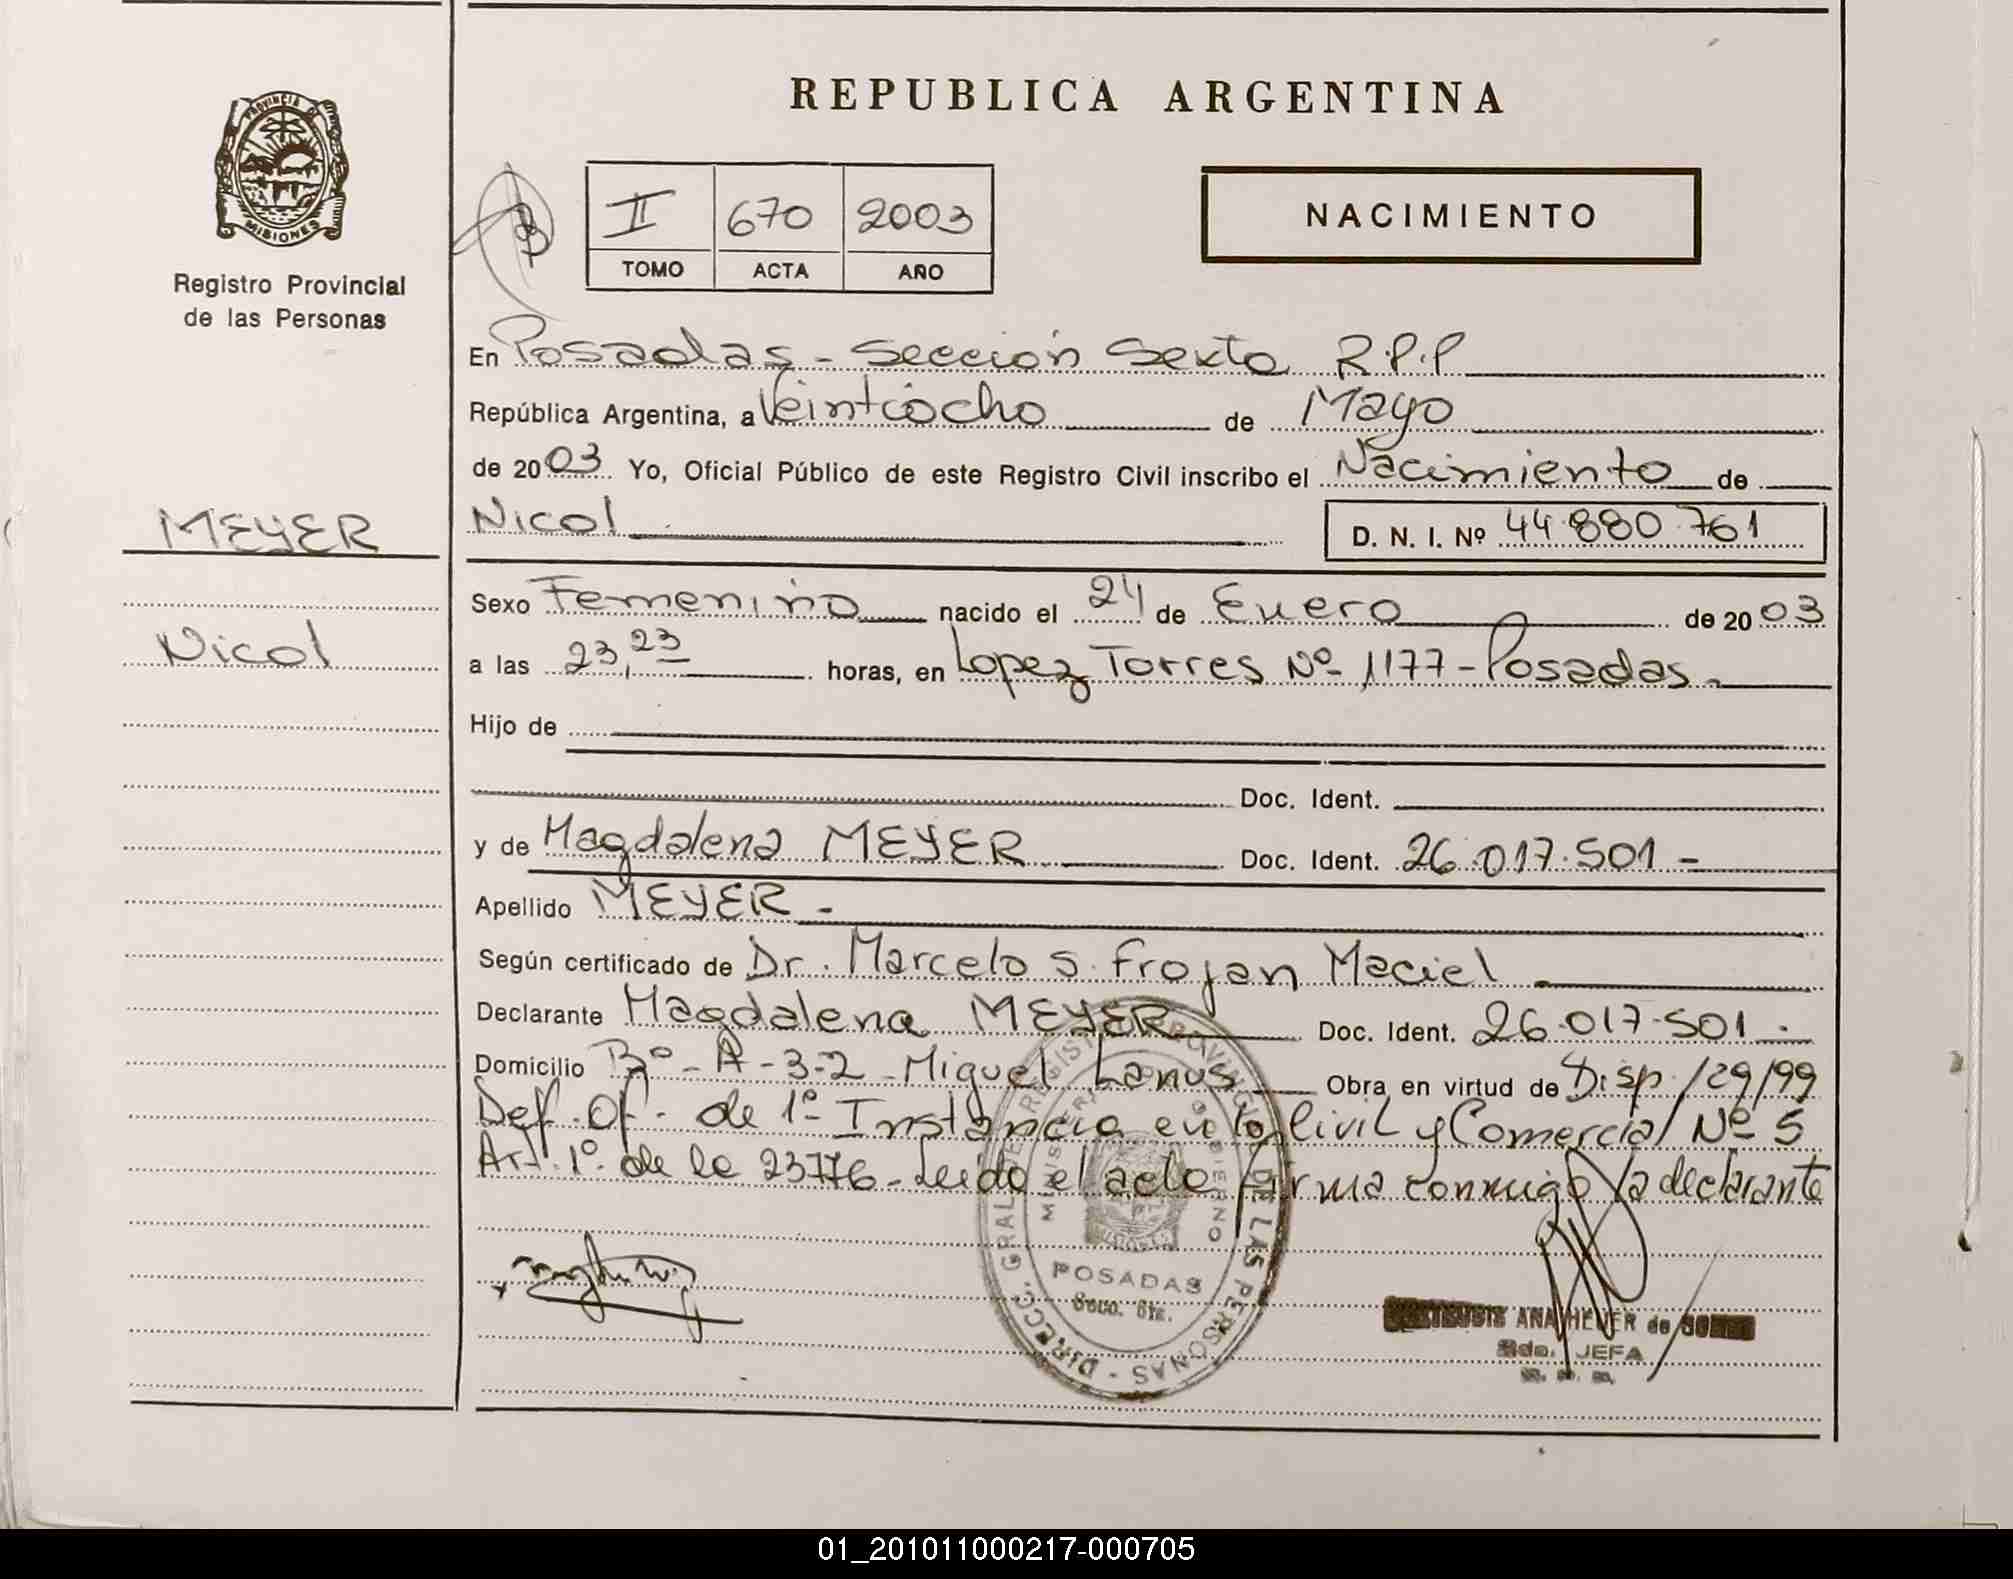 REPUBLICA ARGENTINA
PROVINCIA DE
MISIONES
Registro Provincial
de las Personas
II 670 2003
TOMO ACTA AÑO
NACIMIENTO
En Posadas - Sección Sexta R.P.P
República Argentina, a Veintiocho de Mayo
de 2003 Yo, Oficial Público de este Registro Civil inscribo el Nacimiento de
MEYER
Nicol
Nicol D. N. I. Nº 44.880.761
Sexo Femenino nacido el 24 de Enero de 2003
a las 23,23 horas, en Lopez Torres Nº 1177 - Posadas.
Hijo de
Doc. Ident.
y de Magdalena MEYER Doc. Ident. 26.017.501 -
Apellido MEYER -
Según certificado de Dr. Marcelo S. Frojan Maciel
Declarante Magdalena MEYER Doc. Ident. 26.017.501.
Domicilio Bº - A-3-2 - Miguel Lanus Obra en virtud de Disp. 129/99
Def. Of. de 1º Instancia en lo Civil y Comercial Nº 5
Art. 1º de la 23776 - Leído el acta firma conmigo la declarante
DIRECC. GRAL. DE REGISTRO PROVINCIAL DE LAS PERSONAS
MINISTERIO DE GOBIERNO
POSADAS
Secc. 6ta.
ANA HEUER de
JEFA
01_201011000217-000705